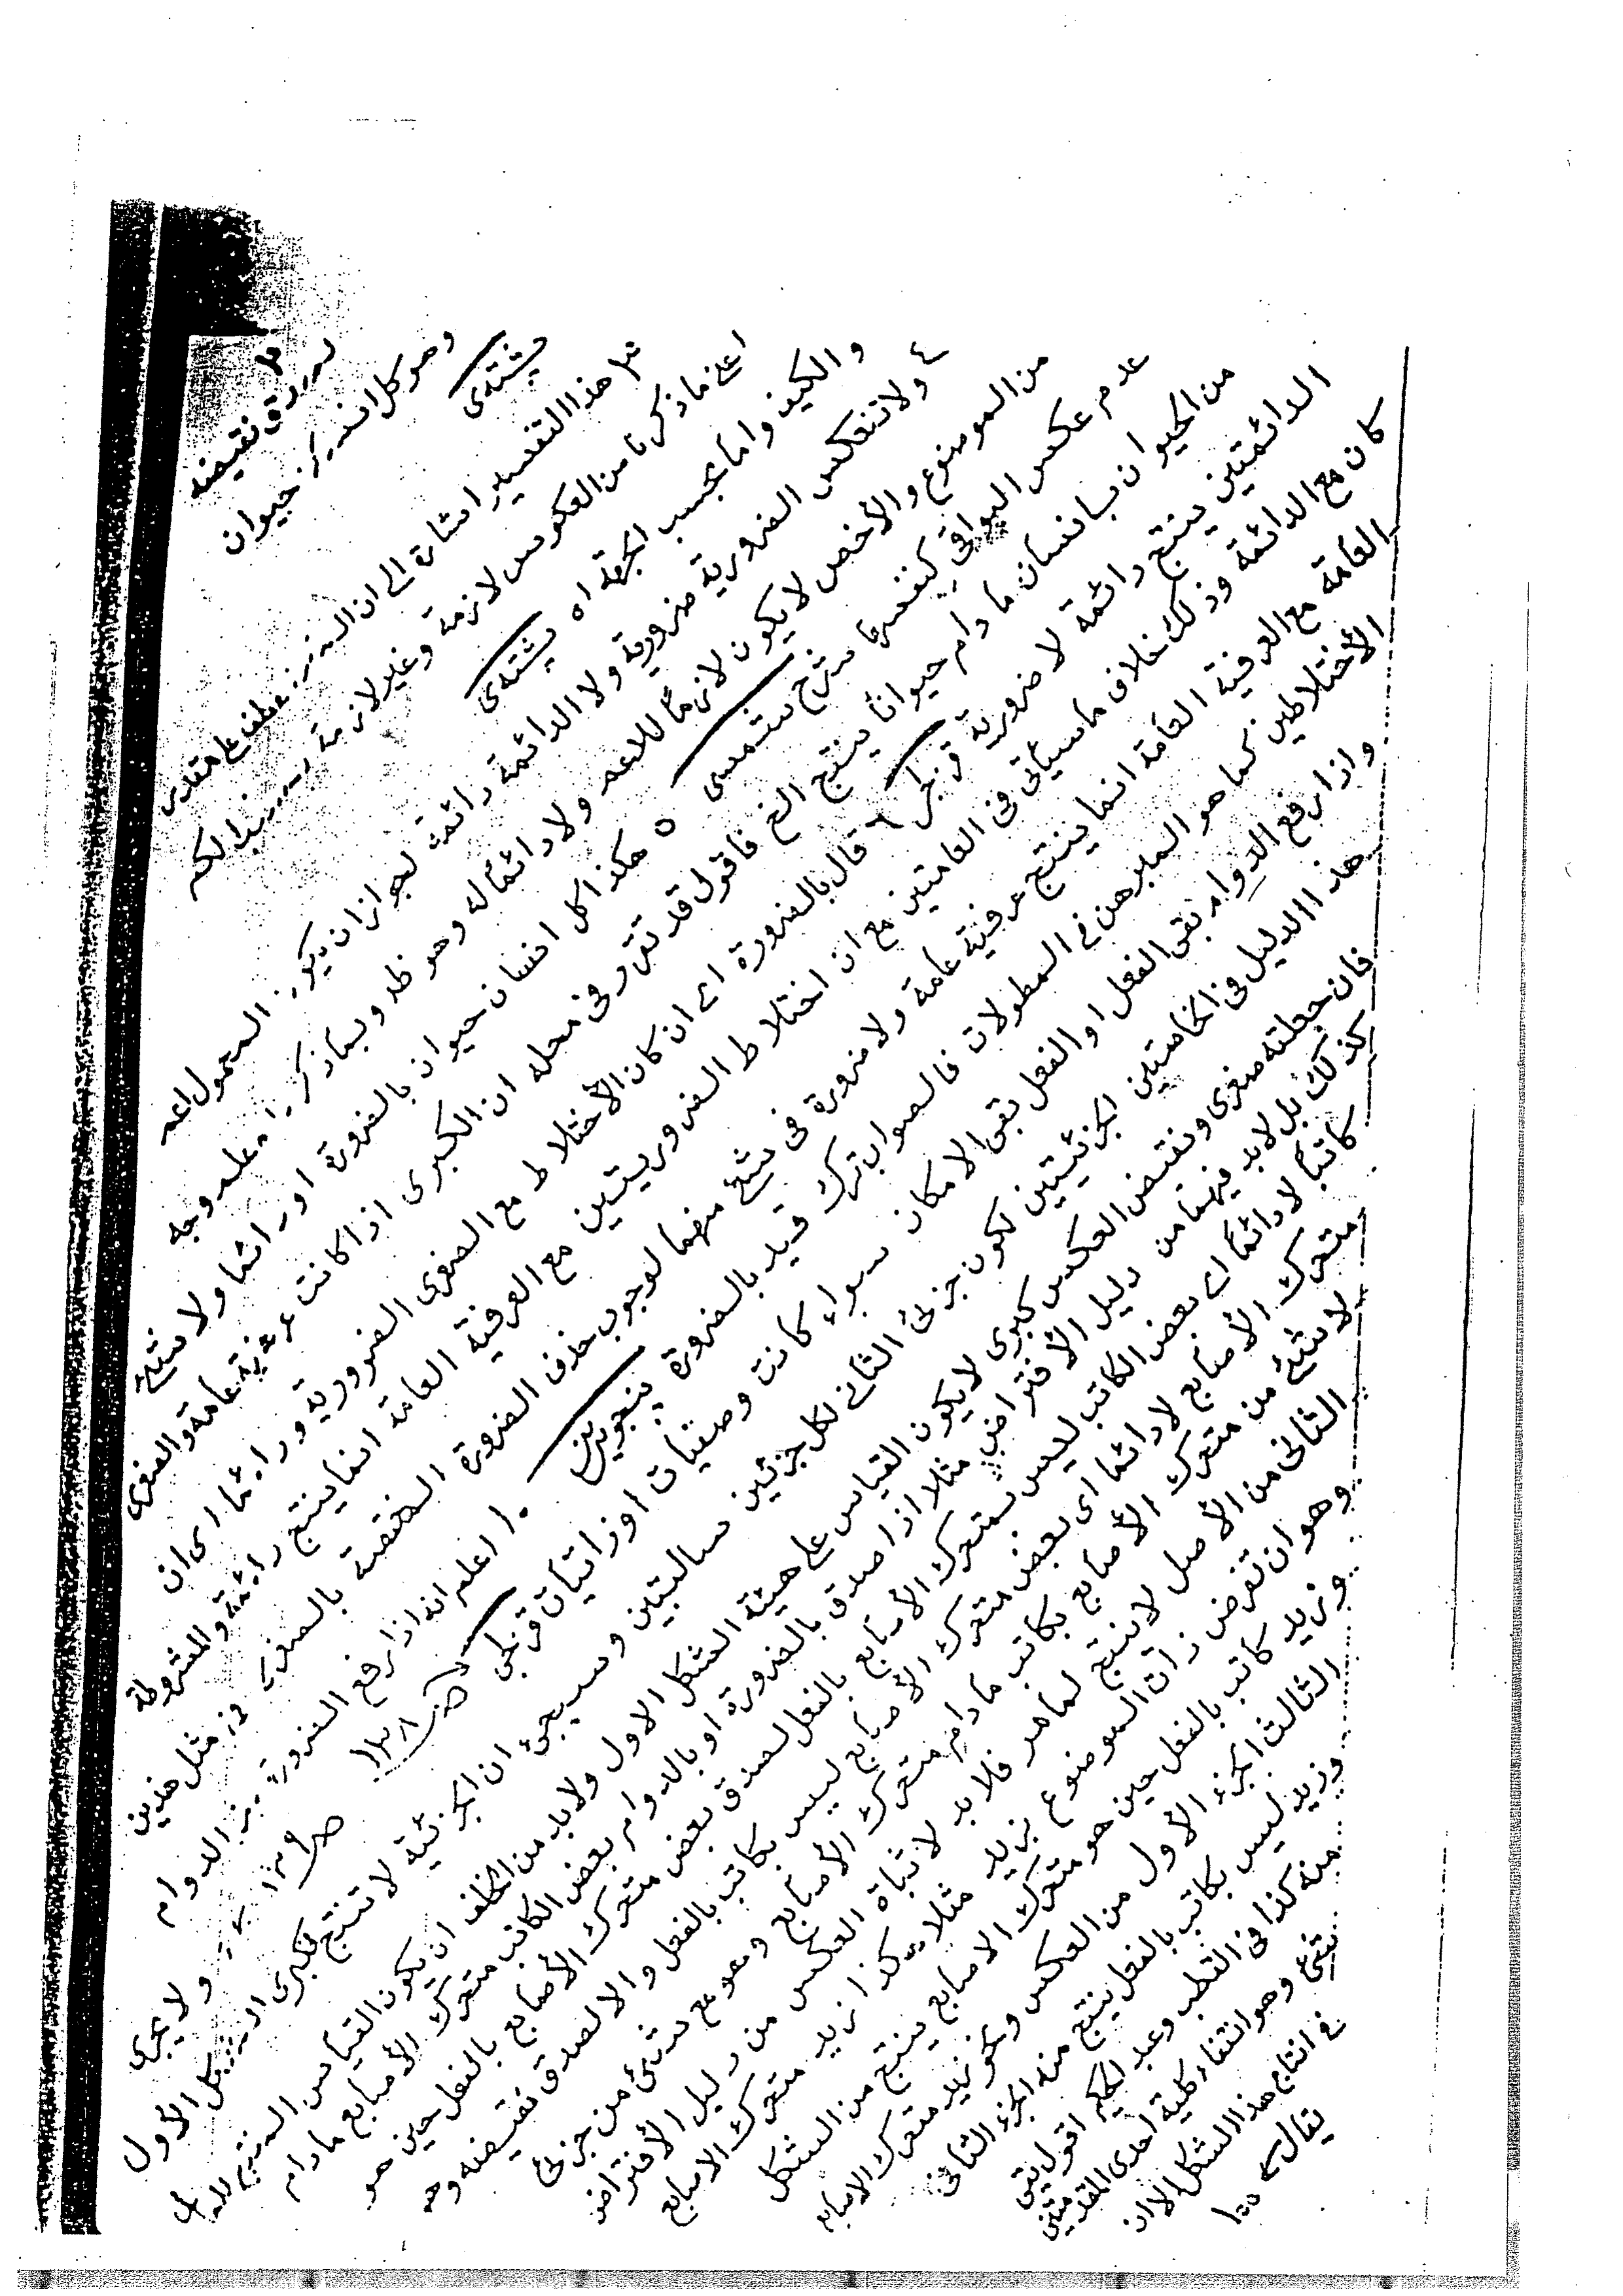 نقيضه
وهو كل حيوان
يشتهى
هذا التفسير اشارة الى ان عطف على مقدر
ما ذكرنا من العكوس لازمة وغير لازمة الكم
والكيف واما بحسب الجهة اه يشتهى
٤ ولاتنعكس الضرورية ضرورية ولا الدائمة دائمة لجواز ان يكون المحمول اعم
من الموضوع والأخص لايكون لازمًا للاعم ولا دائمًا له وهو ظ وبما ذكرنا علم وجه
عدم عكس البواقى كنفسها شرح شمسى ٥ هكذا كل انسان حيوان بالضرورة او دائما ولا شئ
من الحيوان بانسان مادام حيوانًا ينتج الخ فاقول قد تقرر فى محله ان الكبرى اذا كانت عرفية عامة والصغرى
الدائمتين ينتج دائمة لا ضرورية قزلجى ٦ قال بالضرورة اى ان كان الأختلاط مع الصغرى الضرورية ودائما اى ان
كان مع الدائمة وذلك خلاف ماسيأتى فى العامتين مع ان اختلاط الضروريتين مع العرفية العامة انما ينتج دائمة والمشروطة
العامة مع العرفية العامة انما ينتج عرفية عامة ولا ضرورة فى شئ منهما لوجوب حذف الضرورة المختصة بالصغرى فى مثل هذين
الأختلاطين كما هو المبرهن فى المطولات فالصواب ترك قيد بالضرورة ينجوينى ١٠ اعلم انه اذا رفع الضرورة بقى الدوام
واذا رفع الدوام بقى الفعل او الفعل بقى الامكان سواء كانت وصفيات او ذاتيات قزلجى ولا يجرى
هذا الدليل فى الخاصتين الجزئيتين لكون جزئ الثانى لكل جزئين سالبتين وسيجئ ان الجزئية لا تنتج كبرى الشكل الأول
فان جعلته صغرى ونقيض العكس كبرى لايكون القياس على هيئة الشكل الاول ولابد من الخلف ان يكون القياس المنتج
كذلك بل لابد فيهما من دليل الأفتراض مثلا اذا صدق بالضرورة او بالدوام بعض الكاتب متحرك الأصابع مادام
كاتبًا لادائمًا اى بعض الكاتب ليس بمتحرك الأصابع بالفعل لصدق بعض متحرك الأصابع بالفعل حين هو
متحرك الأصابع لادائما اى بعض متحرك الأصابع ليس بكاتب بالفعل والا لصدق نقيضه وهو
لا شئ من متحرك الأصابع بكاتب مادام متحرك الأصابع وهو مع شئ من جزئى
الثانى من الأصل لاينتج لما مر فلابد لاثباة العكس من دليل الأفتراض
وهو ان تفرض ذات الموضوع بزيد مثلا هكذا زيد متحرك الاصابع
وزيد كاتب بالفعل حين هو متحرك الاصابع ينتج من الشكل
الثالث الجزء الأول من العكس ونحو زيد متحرك الاصابع
وزيد ليس بكاتب بالفعل ينتج منه الجزء الثانى
منه كذا فى القطب وعبد الحكيم اقول بقى
شئ وهو انتفاء كلية احدى المقدمتين
فى انتاج هذا الشكل الا ان
يقال